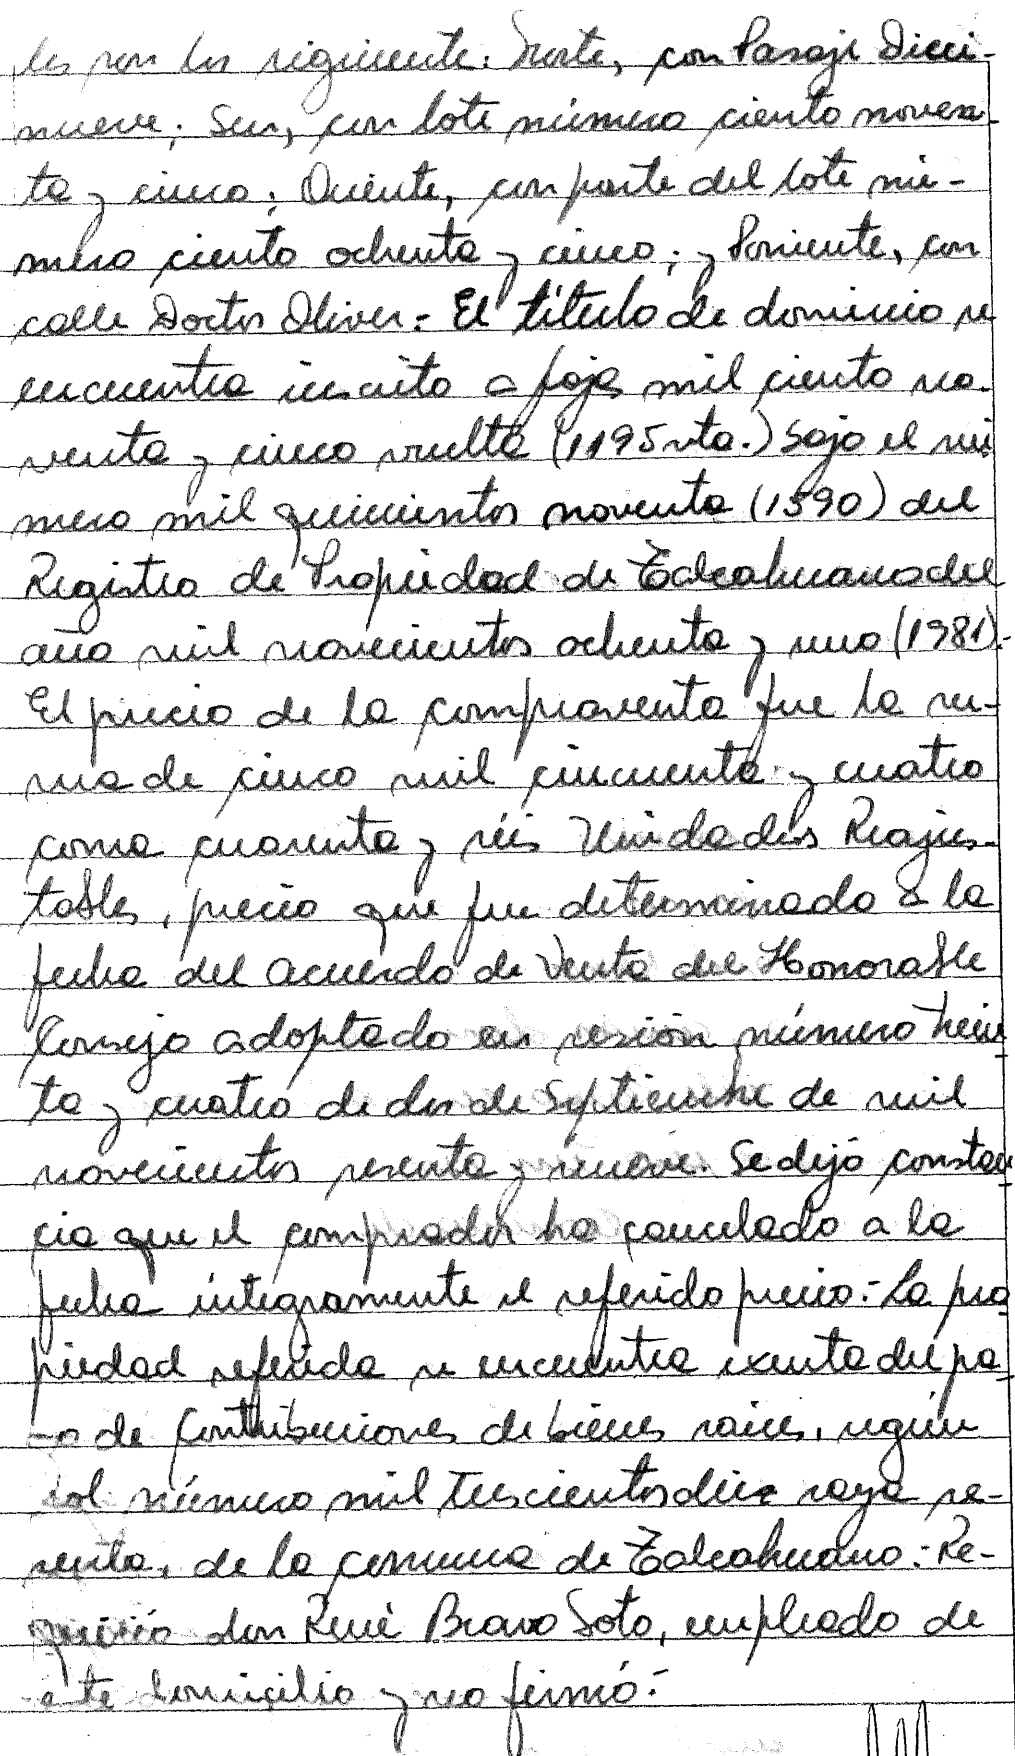 les son los siguiente: Norte, con Pasaje Dieci-
nueve; Sur, con lote número ciento noven-
ta y cinco; Oriente, con parte del lote nú-
mero ciento ochenta y cinco; y Poniente, con
calle Doctor Oliver.- El título de dominio se
encuentra inscrito a fojas mil ciento no-
venta y cinco vuelta (1195 vta.) bajo el nú
mero mil quinientos noventa (1590) del
Registro de Propiedad de Talcahuano del
año mil novecientos ochenta y uno (1981).-
El precio de la compraventa fue la su-
ma de cinco mil cincuenta y cuatro
coma cuarenta y séis Unidades Reajus-
tables, precio que fue determinado a la
fecha del acuerdo de Venta del Honorable
Consejo adoptado en sesión número trein
ta y cuatro de dos de Septiembre de mil
novecientos sesenta y nueve. Se dejó constan
cia que el comprador ha cancelado a la
fecha íntegramente el referido precio.- La pro
piedad referida se encuentra exenta del pa-
go de Contribuciones de bienes raíces, según
rol número mil trescientos diez raya se-
senta, de la comuna de Talcahuano.- Re-
quirió don René Bravo Soto, empleado de
este domicilio y no firmó.-